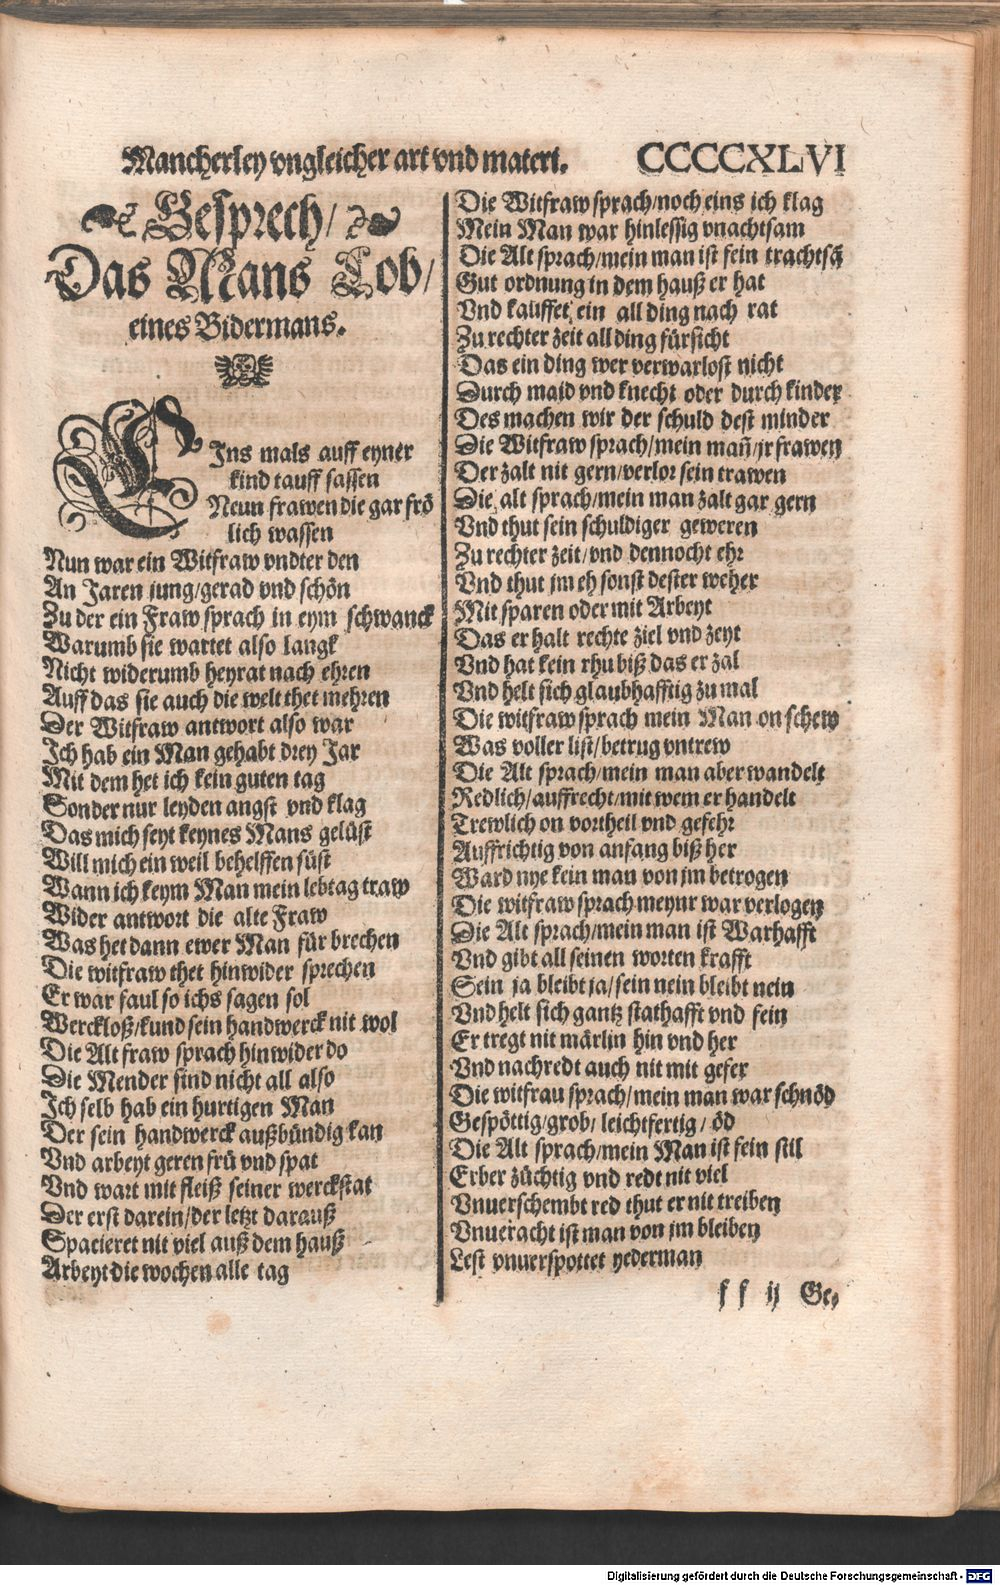 Mancherley vngleicher art vnd materi. CCCCXLVI
Gesprech/
Das Mans Lob/
eines Bidermans.
EIns mals auff eyner
kind tauff sassen
Neun frawen die gar frö
lich wassen
Nun war ein Witfraw vndter den
An Jaren jung/gerad vnd schön
Zu der ein Fraw sprach in eym schwanck
Warumb sie wartet also langk
Nicht widerumb heyrat nach ehren
Auff das sie auch die welt thet mehren
Der Witfraw antwort also war
Ich hab ein Man gehabt drey Jar
Mit dem het ich kein guten tag
Sonder nur leyden angst vnd klag
Das mich seyt keynes Mans gelüst
Will mich ein weil behelffen süst
Wann ich keym Man mein lebtag traw
Wider antwort die alte Fraw
Was het dann ewer Man für brechen
Die witfraw thet hinwider sprechen
Er war faul so ichs sagen sol
Werckloß/kund sein handwerck nit wol
Die Alt fraw sprach hinwider do
Die Mender sind nicht all also
Ich selb hab ein hurtigen Man
Der sein handwerck außbündig kan
Vnd arbeyt geren frü vnd spat
Vnd wart mit fleiß seiner werckstat
Der erst darein/der letzt darauß
Spacieret nit viel auß dem hauß
Arbeyt die wochen alle tag
Die Witfraw sprach/noch eins ich klag
Mein Man war hinlessig vnachtsam
Die Alt sprach/mein man ist fein trachtsā
Gut ordnung in dem hauß er hat
Vnd kauffet ein all ding nach rat
Zu rechter zeit all ding fürsicht
Das ein ding wer verwarlost nicht
Durch maid vnd knecht oder durch kinder
Des machen wir der schuld dest minder
Die Witfraw sprach/mein mañ/jr frawen
Der zalt nit gern/verlor sein trawen
Die alt sprach/mein man zalt gar gern
Vnd thut sein schuldiger geweren
Zu rechter zeit/vnd dennocht ehr
Vnd thut jm eh sonst dester weher
Mit sparen oder mit Arbeyt
Das er halt rechte ziel vnd zeyt
Vnd hat kein rhu biß das er zal
Vnd helt sich glaubhafftig zu mal
Die witfraw sprach mein Man on schew
Was voller list/betrug vntrew
Die Alt sprach/mein man aber wandelt
Redlich/auffrecht/mit wem er handelt
Trewlich on vortheil vnd gefehr
Auffrichtig von anfang biß her
Ward nye kein man von jm betrogen
Die witfraw sprach meynr war verlogen
Die Alt sprach/mein man ist Warhafft
Vnd gibt all seinen worten krafft
Sein ja bleibt ja/sein nein bleibt nein
Vnd helt sich gantz stathafft vnd fein
Er tregt nit märlin hin vnd her
Vnd nachredt auch nit mit gefer
Die witfrau sprach/mein man war schnöd
Gespöttig/grob/leichtfertig/öd
Die Alt sprach/mein Man ist fein stil
Erber züchtig vnd redt nit viel
Vnuerschembt red thut er nit treiben
Vnueracht ist man von jm bleiben
Lest vnuerspottet yederman
f f ij Ge-
Digitalisierung gefördert durch die Deutsche Forschungsgemeinschaft - DFG